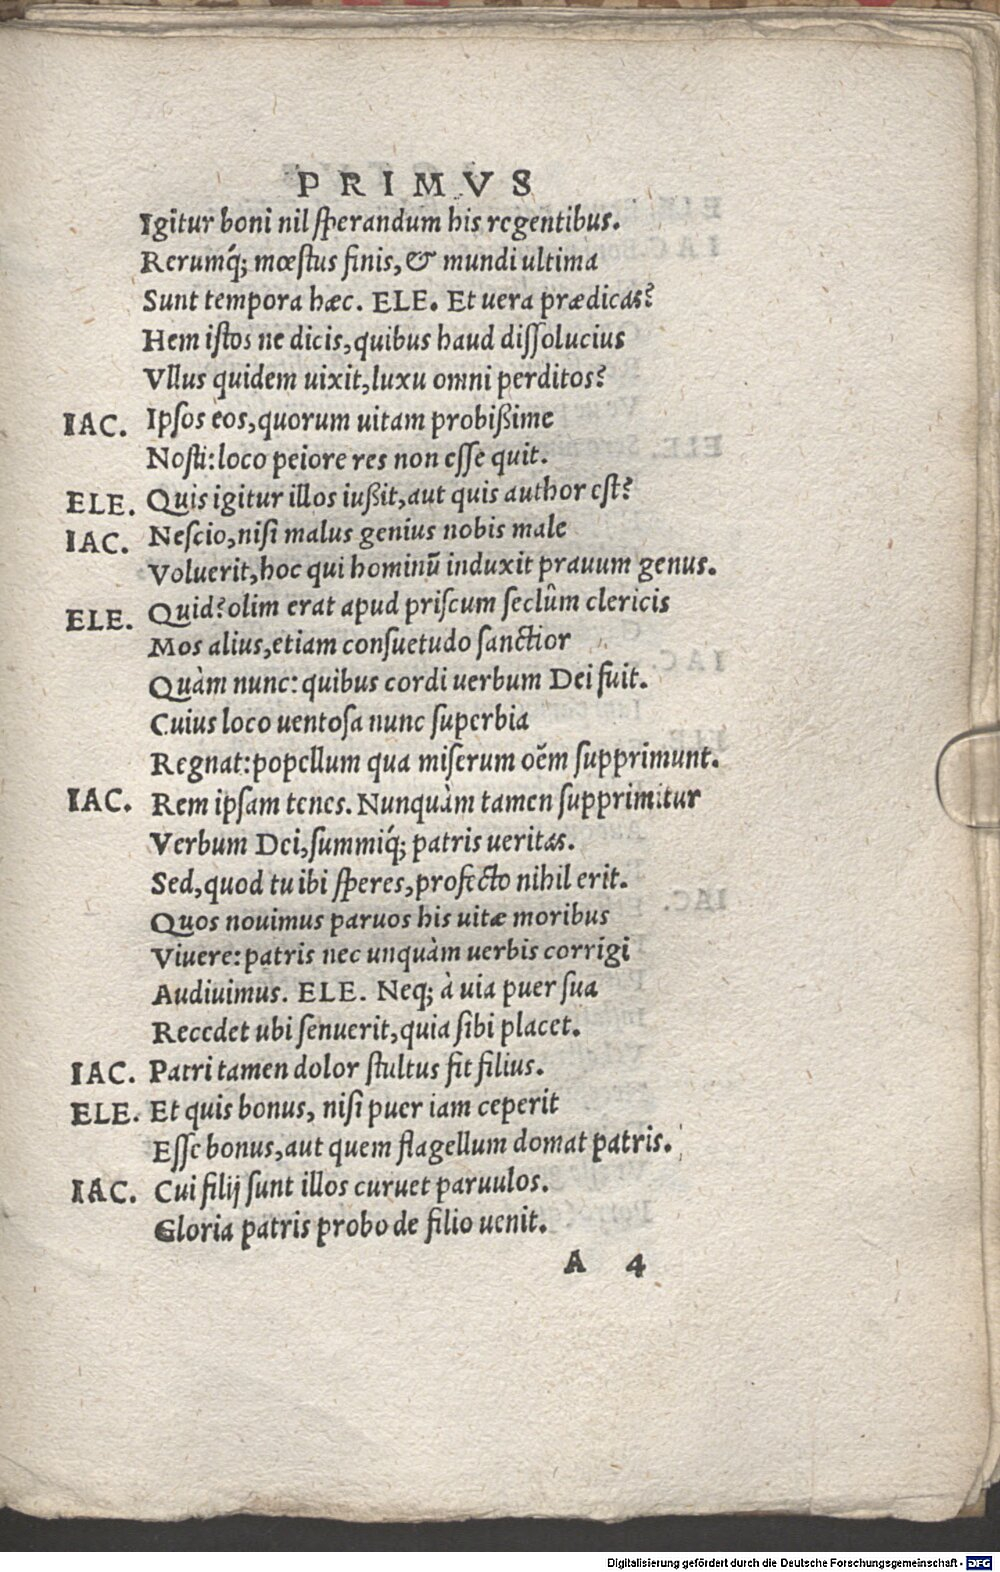 PRIMVS
Igitur boni nil sperandum his regentibus.
Rerumq́; mœstus finis, & mundi ultima
Sunt tempora hæc. ELE. Et uera prædicas?
Hem istos ne dicis, quibus haud dissolucius
Vllus quidem uixit, luxu omni perditos?
IAC. Ipsos eos, quorum uitam probißime
Nosti: loco peiore res non esse quit.
ELE. Quis igitur illos iußit, aut quis author est?
IAC. Nescio, nisi malus genius nobis male
Voluerit, hoc qui hominū induxit prauum genus.
ELE. Quid? olim erat apud priscum seclûm clericis
Mos alius, etiam consuetudo sanctior
Quàm nunc: quibus cordi uerbum Dei fuit.
Cuius loco uentosa nunc superbia
Regnat: popellum qua miserum oẽm supprimunt.
IAC. Rem ipsam tenes. Nunquàm tamen supprimitur
Verbum Dei, summiq́; patris ueritas.
Sed, quod tu ibi speres, profecto nihil erit.
Quos nouimus paruos his uitæ moribus
Viuere: patris nec unquàm uerbis corrigi
Audiuimus. ELE. Neq; à uia puer sua
Recedet ubi senuerit, quia sibi placet.
IAC. Patri tamen dolor stultus fit filius.
ELE. Et quis bonus, nisi puer iam ceperit
Esse bonus, aut quem flagellum domat patris.
IAC. Cui filij sunt illos curuet paruulos.
Gloria patris probo de filio uenit.
A 4
Digitalisierung gefördert durch die Deutsche Forschungsgemeinschaft - DFG